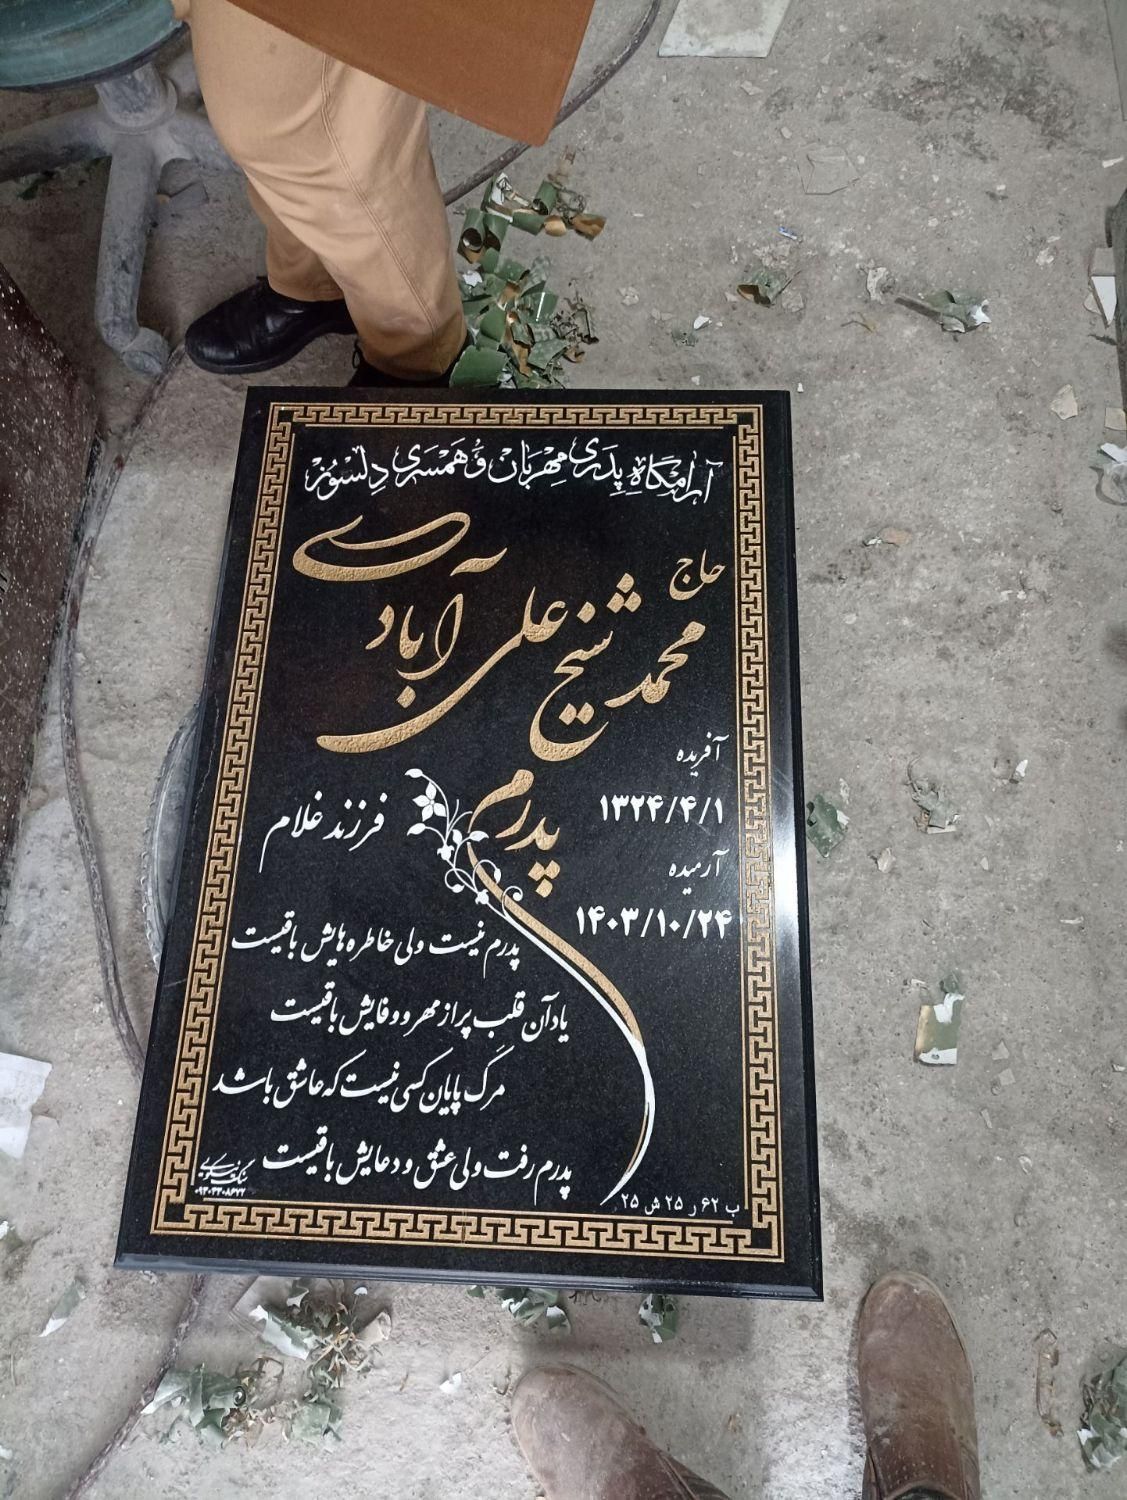 آرامگاهِ پدری مهربان و همسری دلسوز
حاج
محمد شیخ علی آبادی
آفریده
۱۳۲۴/۴/۱
پدرم
فرزند غلام
آرمیده
۱۴۰۳/۱۰/۲۴
پدرم نیست ولی خاطره هایش باقیست
یاد آن قلب پر از مهر و وفایش باقیست
مرگ پایان کسی نیست که عاشق باشد
پدرم رفت ولی عشق و دعایش باقیست
ب ۶۲ ر ۲۵ ش ۲۵